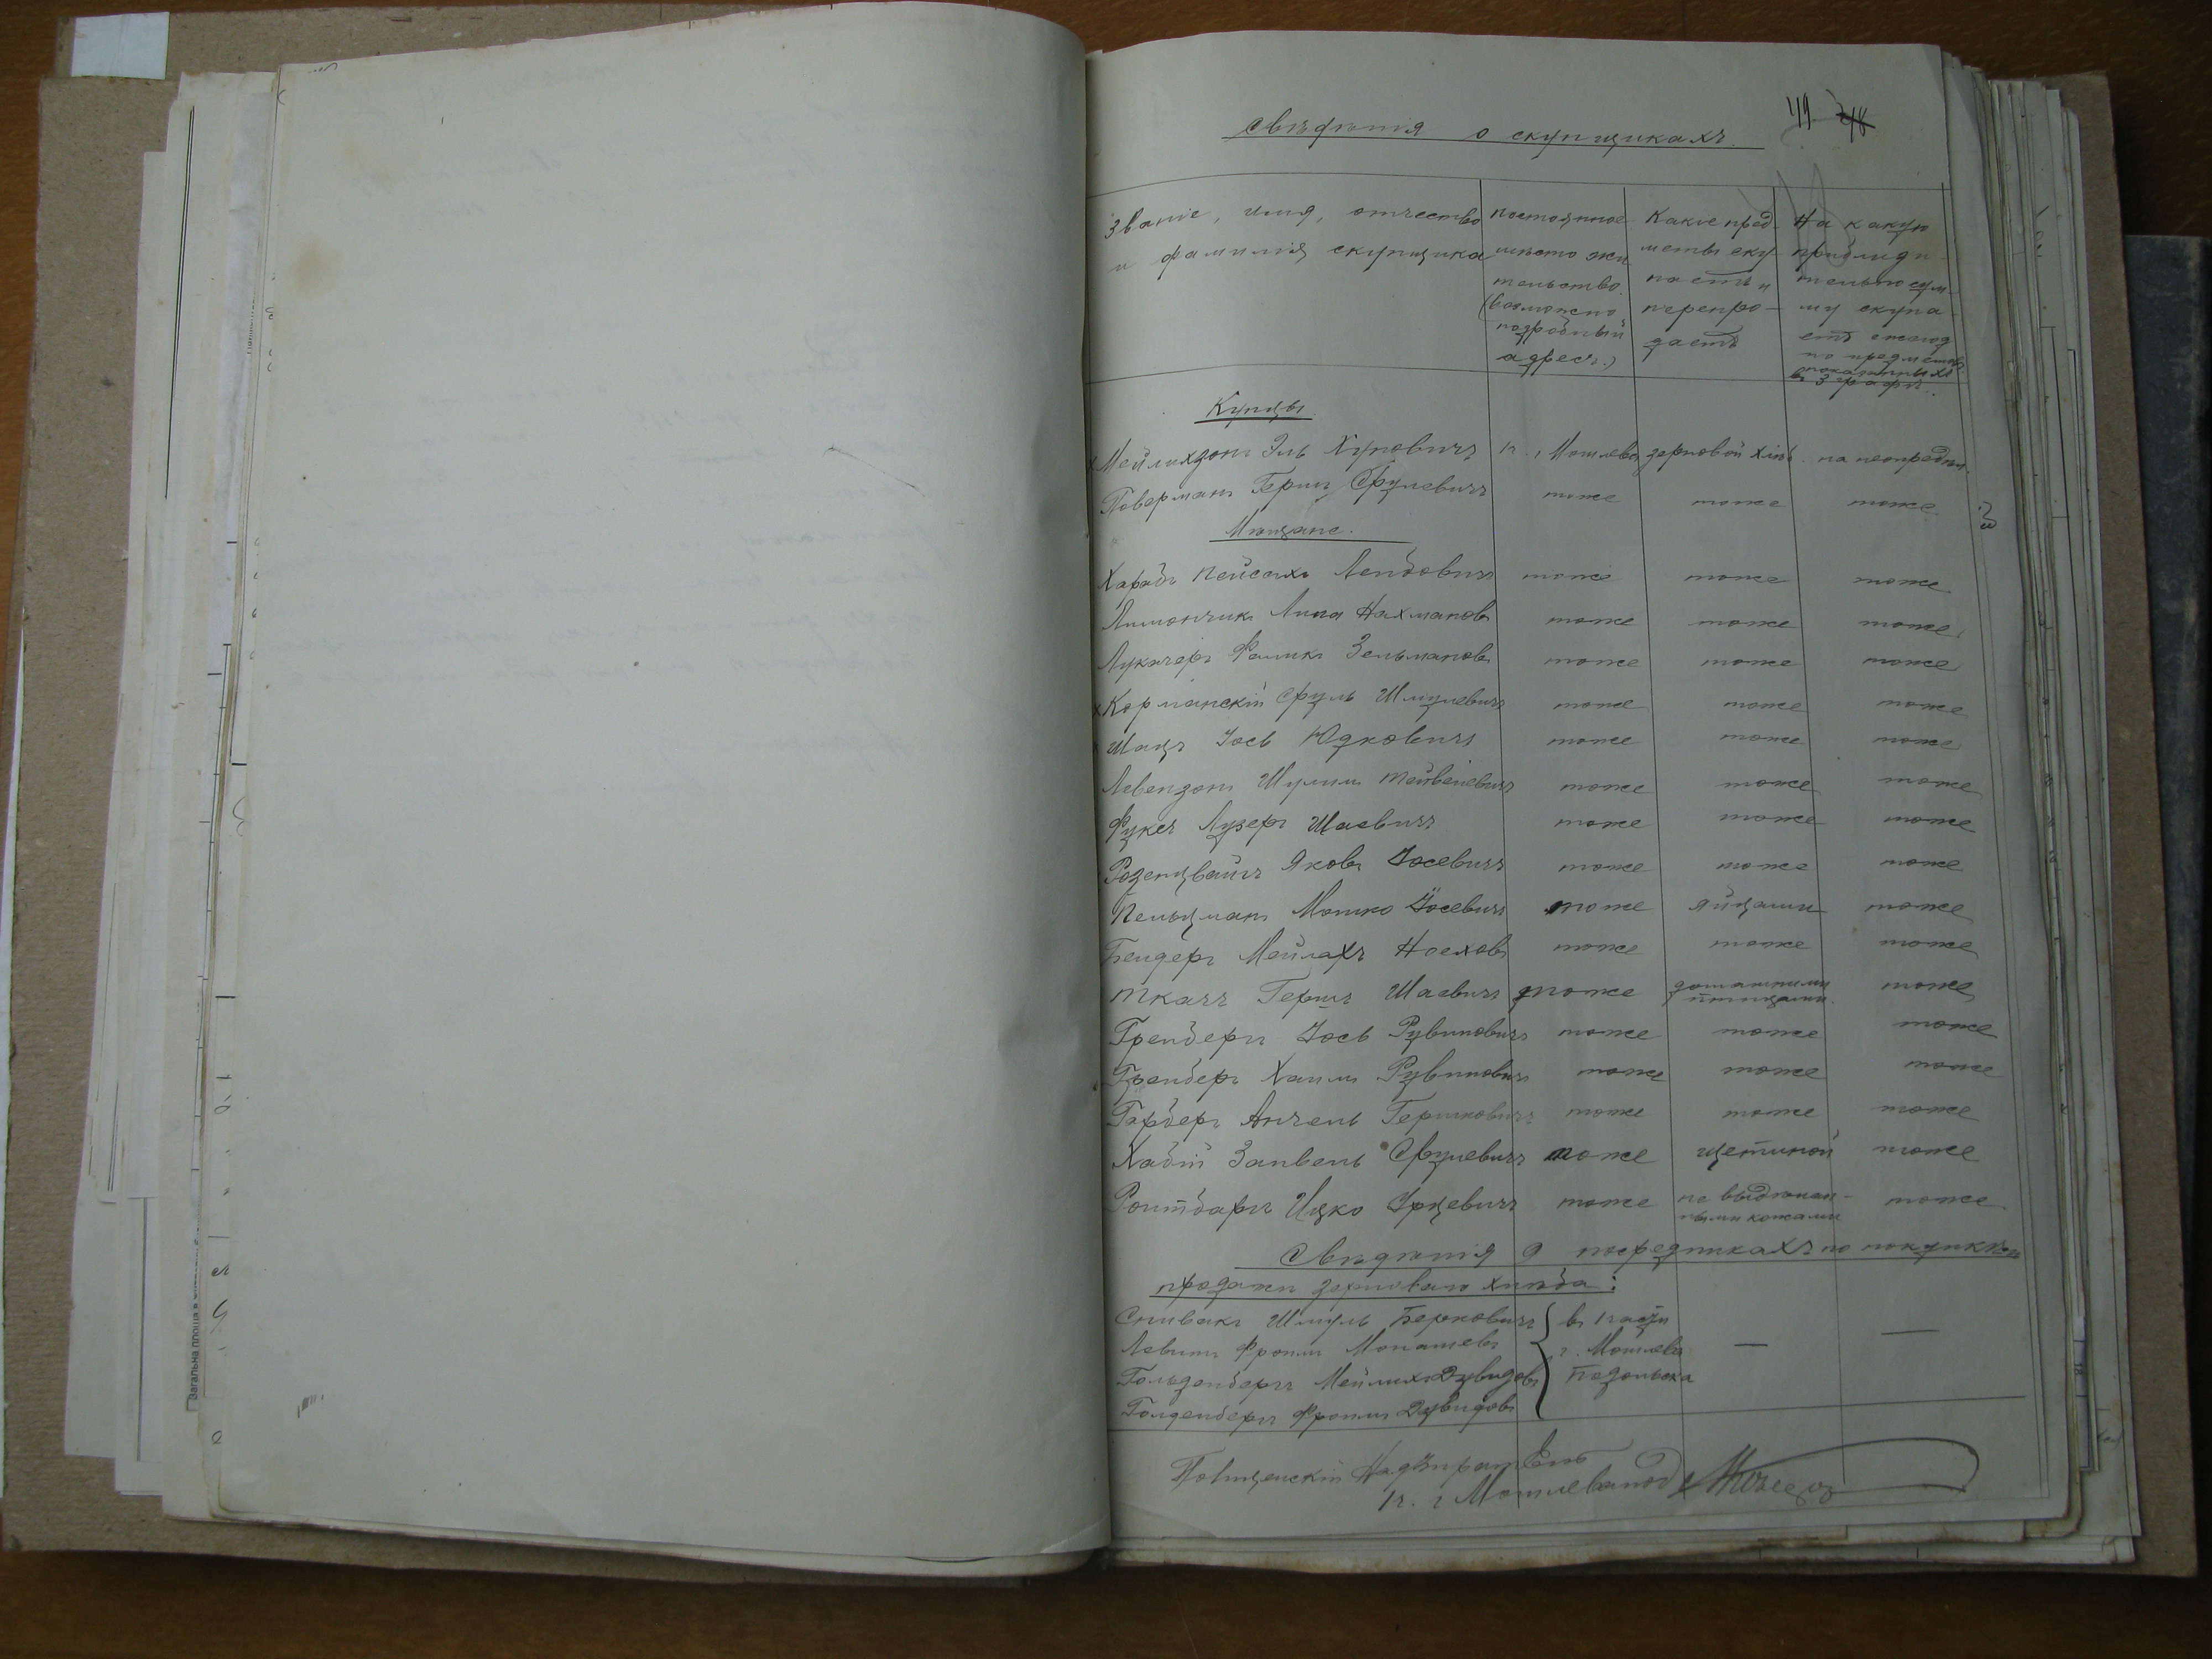 49 48
Свѣдѣнія о скупщикахъ.
Званіе, имя, отчество и фамилія скупщика
постоянное мѣсто жительство. (возможно подробный адресъ.)
Какіе предметы скупаетъ и перепродаетъ
На какую приблизительно сумму скупаетъ ежегодно предметовъ показанныхъ въ 3 графѣ.
Купцы.
Мейлихзонъ Эль Хуновичъ 1 ч. г. Могилева зерновой хлѣб. на неопредѣл.
Поверманъ Гершъ Срулевичъ тоже тоже тоже
Мѣщане.
Харабъ Пейсахъ Лейбовичъ тоже тоже тоже
Лимончикъ Липа Нахмановъ тоже тоже тоже
Лукачеръ Фаликъ Зельмановъ тоже тоже тоже
Корманскій Сруль Шмулевичъ тоже тоже тоже
Шацъ Іось Юдковичъ тоже тоже тоже
Левензонъ Шулимъ тоже тоже тоже
Фуксъ Лузеръ Шаевичъ тоже тоже тоже
Розенцвайгъ Яковъ Іосевичъ тоже тоже тоже
Пельцманъ Мошко Іосевичъ тоже яйцами тоже
Бендеръ Мейлахъ Ноеховъ тоже тоже тоже
Ткачъ Гершъ Шаевичъ тоже домашними птицами. тоже
Гренбергъ Іось Рувиновичъ тоже тоже тоже
Гренбергъ Хаимъ Рувиновичъ тоже тоже тоже
Гарберъ Анчель Гершковичъ тоже тоже тоже
Хабій Занвель Срулевичъ тоже щетиной тоже
Ройтбаргъ Ицко тоже не выдѣланными кожами тоже
Свѣдѣнія о посредникахъ по покупкѣ и
продажи зерноваго хлѣба:
Спивакъ Шмуль Берковичъ в 1 части
Левитъ Фроимъ Монашевъ г. Могилева — —
Гольденбергъ Мейлихъ Дувидовъ Подольска
Голденбергъ Фроимъ Дувидовъ
Полицейскій Надзиратель
1 ч. г. Могилева под.